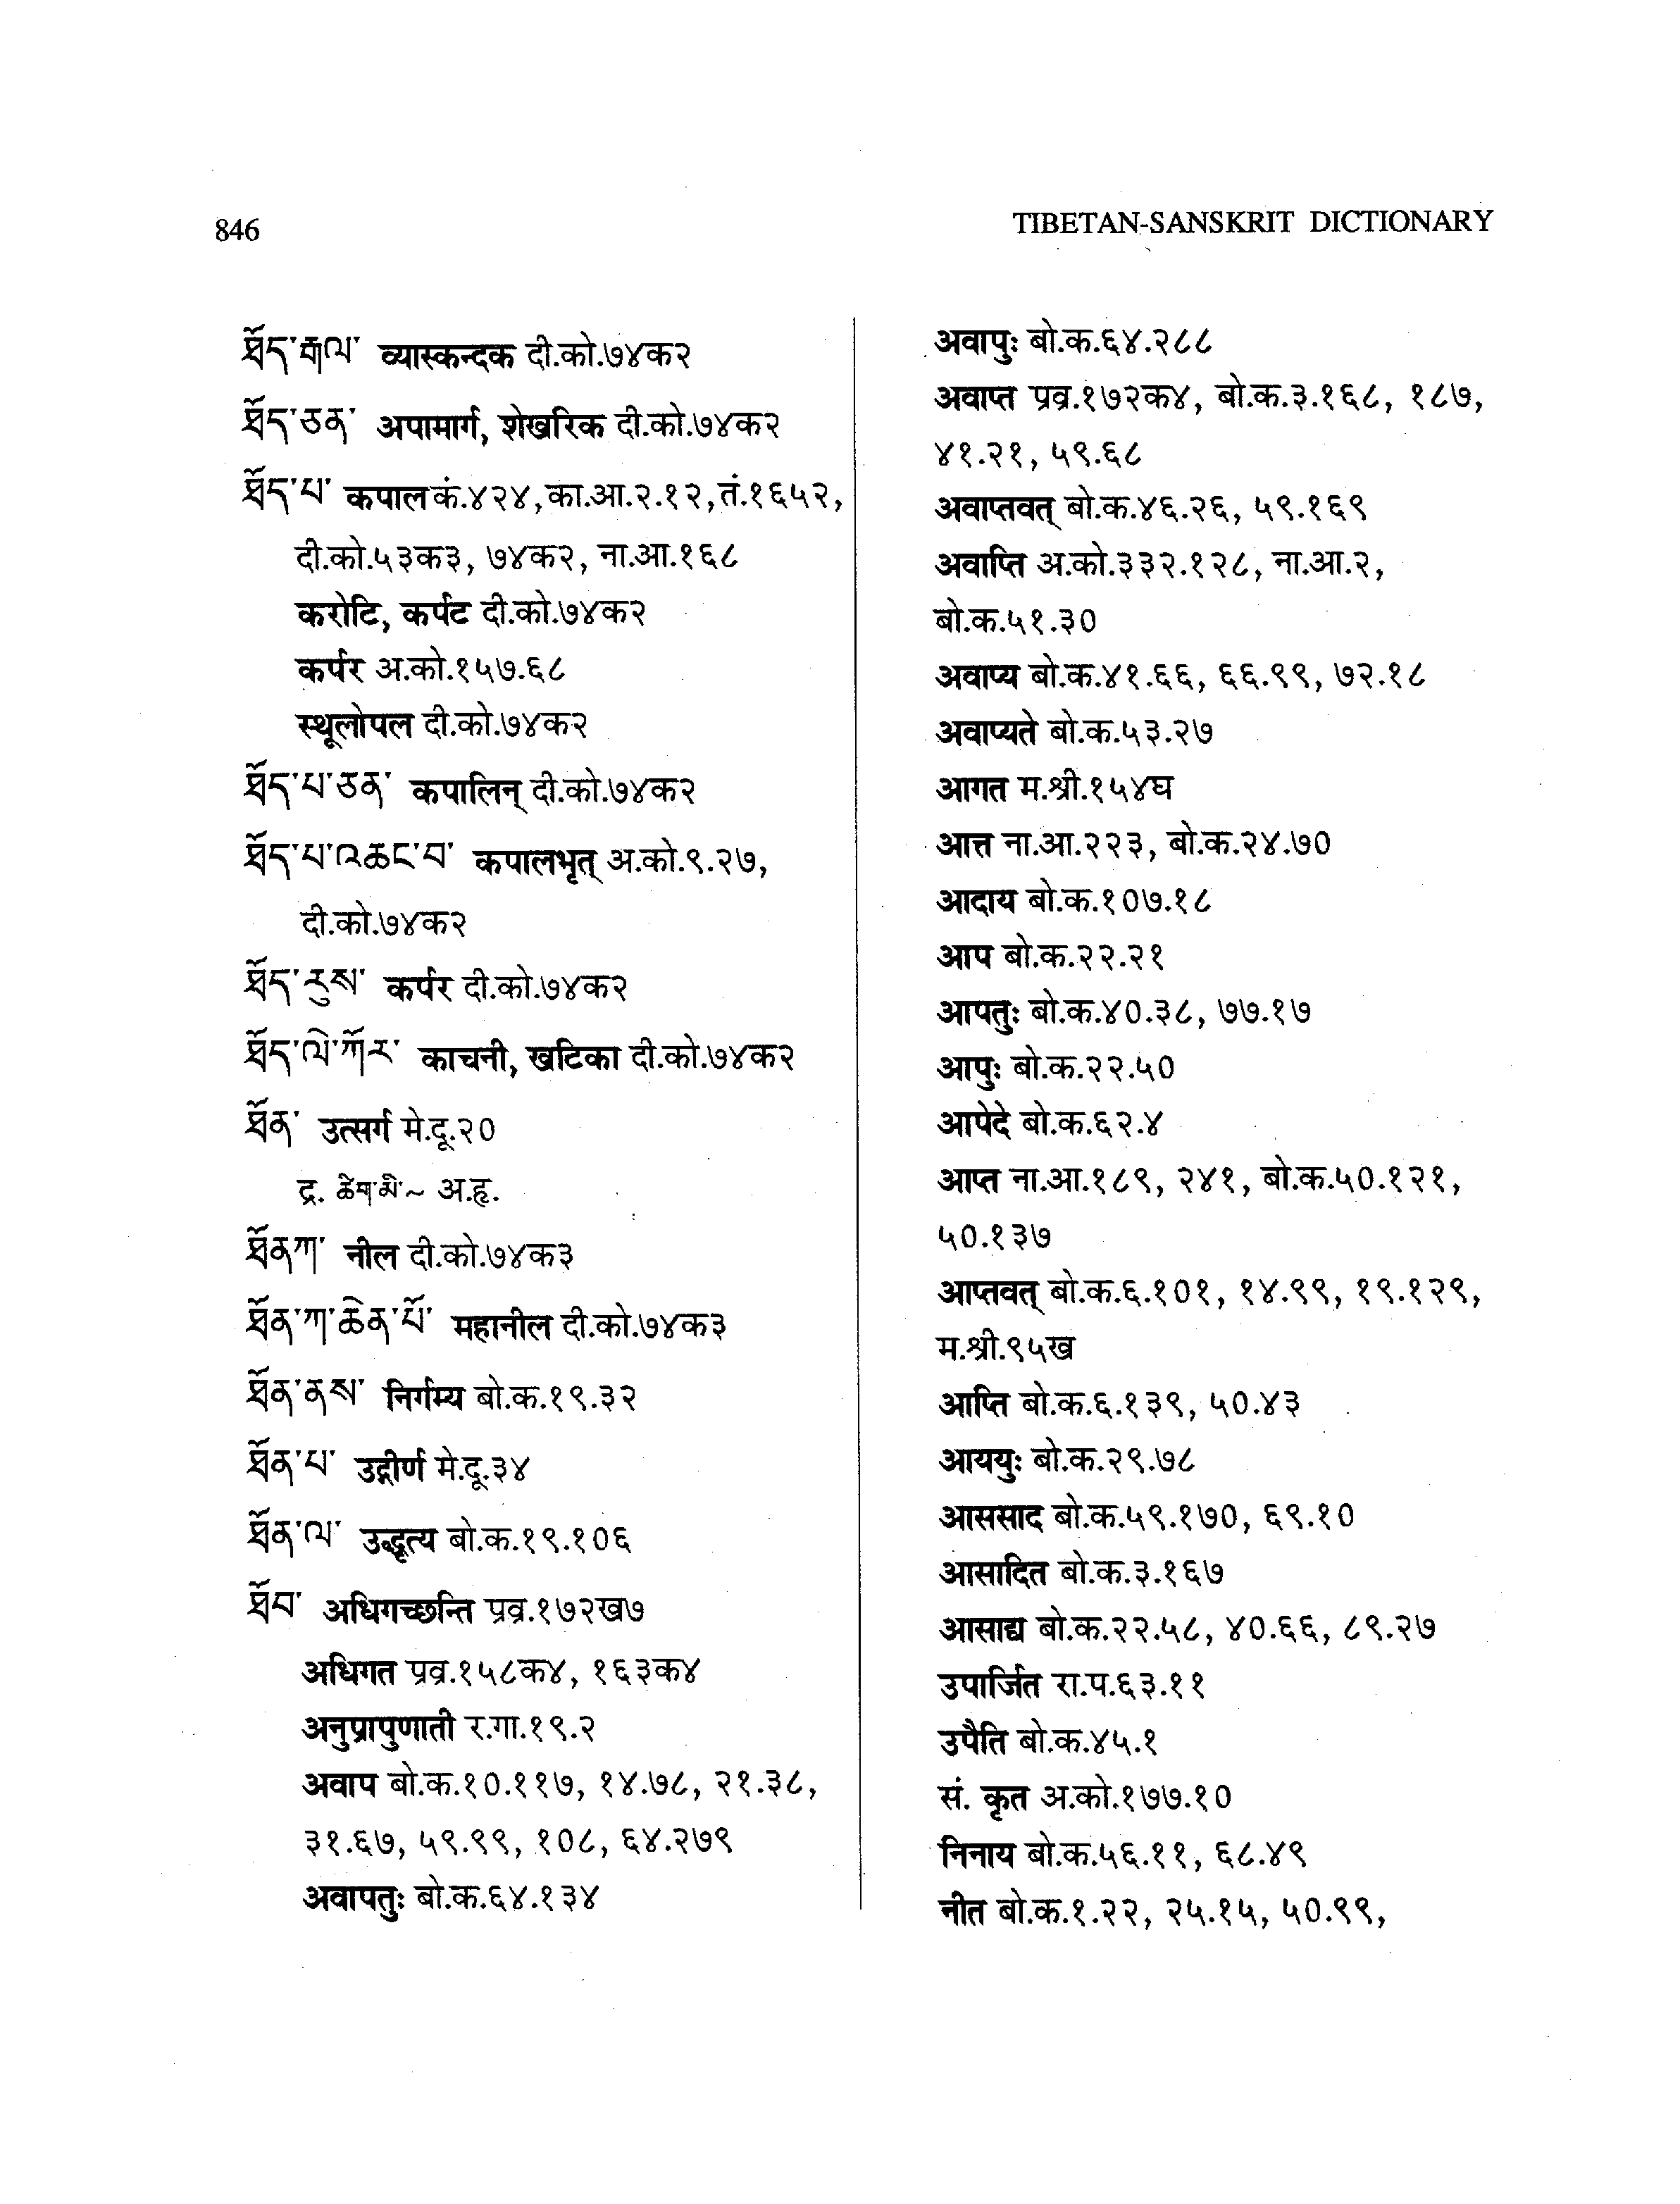 846
TIBETAN-SANSKRIT DICTIONARY
ཐོད་རྒལ་ व्यास्कन्दक दी.को.७४क२
ཐོད་ཅན་ अपामार्ग, शेखरिक दी.को.७४क२
ཐོད་པ་ कपाल कं.४२४, का.आ.२.१२, तं.१६५२,
दी.को.५३क३, ७४क२, ना.आ.१६८
करोटि, कर्पट दी.को.७४क२
कर्पर अ.को.१५७.६८
स्थूलोपल दी.को.७४क२
ཐོད་པ་ཅན་ कपालिन् दी.को.७४क२
ཐོད་པ་འཆང་བ་ कपालभृत् अ.को.९.२७,
दी.को.७४क२
ཐོད་རུས་ कर्पर दी.को.७४क२
ཐོད་ལེ་ཀོར་ काचनी, खटिका दी.को.७४क२
ཐོན་ उत्सर्ग मे.दू.२०
द्र. ཚེག་མི་~ अ.हृ.
ཐོནཀ་ नील दी.को.७४क३
ཐོན་ཀ་ཆེན་པོ་ महानील दी.को.७४क३
ཐོན་ནས་ निर्गम्य बो.क.१९.३२
ཐོན་པ་ उद्गीर्ण मे.दू.३४
ཐོན་ལ་ उद्धृत्य बो.क.१९.१०६
ཐོབ་ अधिगच्छन्ति प्रव्र.१७२ख७
अधिगत प्रव्र.१५८क४, १६३क४
अनुप्रापुणाती र.गा.१९.२
अवाप बो.क.१०.११७, १४.७८, २१.३८,
३१.६७, ५९.९९, १०८, ६४.२७९
अवापतुः बो.क.६४.१३४
अवापुः बो.क.६४.२८८
अवाप्त प्रव्र.१७२क४, बो.क.३.१६८, १८७,
४१.२१, ५९.६८
अवाप्तवत् बो.क.४६.२६, ५९.१६९
अवाप्ति अ.को.३३२.१२८, ना.आ.२,
बो.क.५१.३०
अवाप्य बो.क.४१.६६, ६६.९९, ७२.१८
अवाप्यते बो.क.५३.२७
आगत म.श्री.१५४घ
आत्त ना.आ.२२३, बो.क.२४.७०
आदाय बो.क.१०७.१८
आप बो.क.२२.२१
आपतुः बो.क.४०.३८, ७७.१७
आपुः बो.क.२२.५०
आपेदे बो.क.६२.४
आप्त ना.आ.१८९, २४१, बो.क.५०.१२१,
५०.१३७
आप्तवत् बो.क.६.१०१, १४.९९, १९.१२९,
म.श्री.९५ख
आप्ति बो.क.६.१३९, ५०.४३
आययुः बो.क.२९.७८
आससाद बो.क.५९.१७०, ६९.१०
आसादित बो.क.३.१६७
आसाद्य बो.क.२२.५८, ४०.६६, ८९.२७
उपार्जित रा.प.६३.११
उपैति बो.क.४५.१
सं. कृत अ.को.१७७.१०
निनाय बो.क.५६.११, ६८.४९
नीत बो.क.१.२२, २५.१५, ५०.९९,